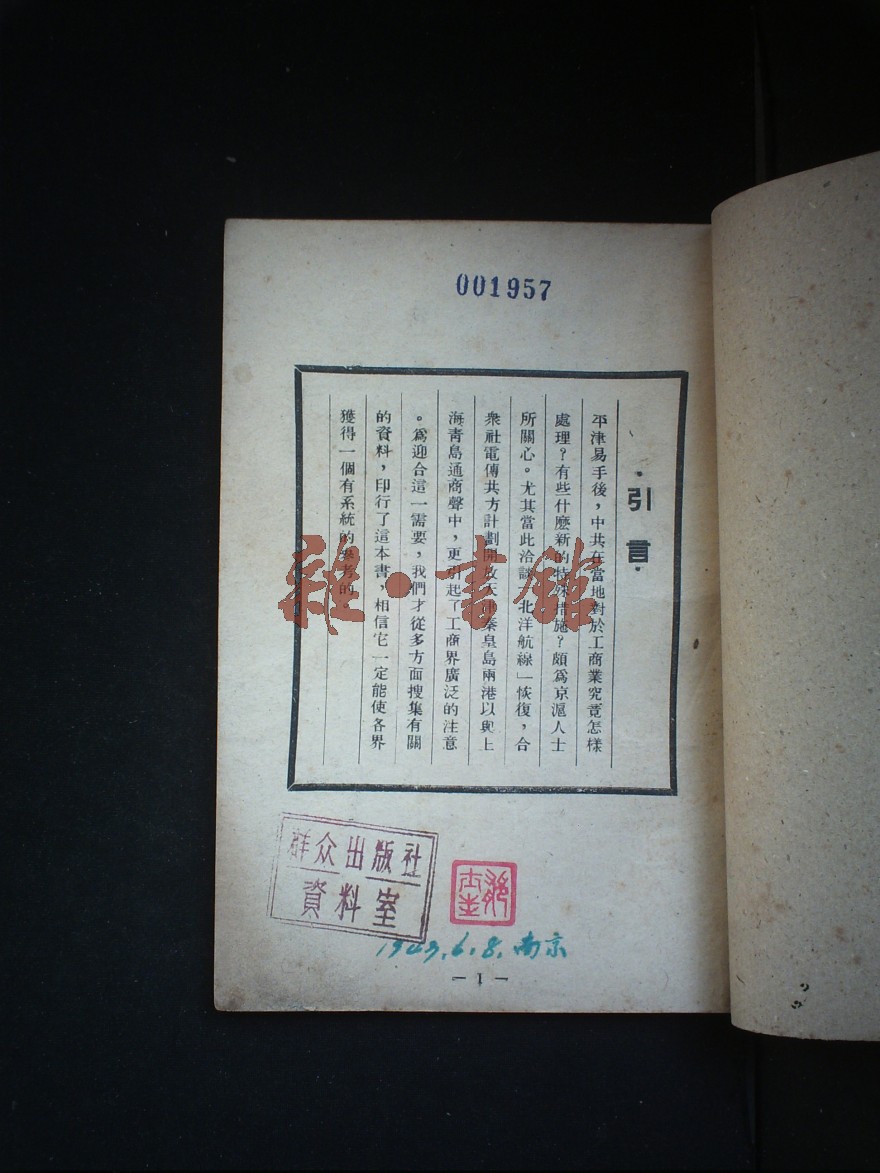 001957
·引言·
平津易手後，中共在當地對於工商業究竟怎樣
處理？有些什麽新的特殊措施？頗爲京滬人士
所關心。尤其當此洽談「北洋航線」恢復，合
衆社電傳共方計劃開放天津秦皇島兩港以與上
海青島通商聲中，更引起了工商界廣泛的注意
。爲迎合這一需要，我們才從多方面搜集有關
的資料，印行了這本書，相信它一定能使各界
獲得一個有系統的參考的
雜·書館
群众出版社
資料室
1949.6.8.南京
—1—